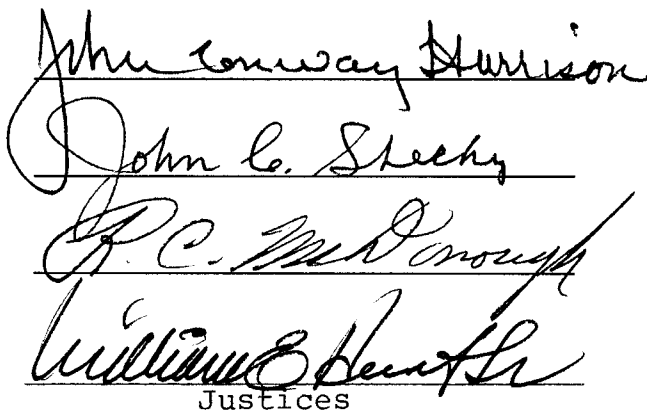 John Conway Harrison
John C. Sheehy
R. C. McDonough
William E. Hunt Sr
Justices